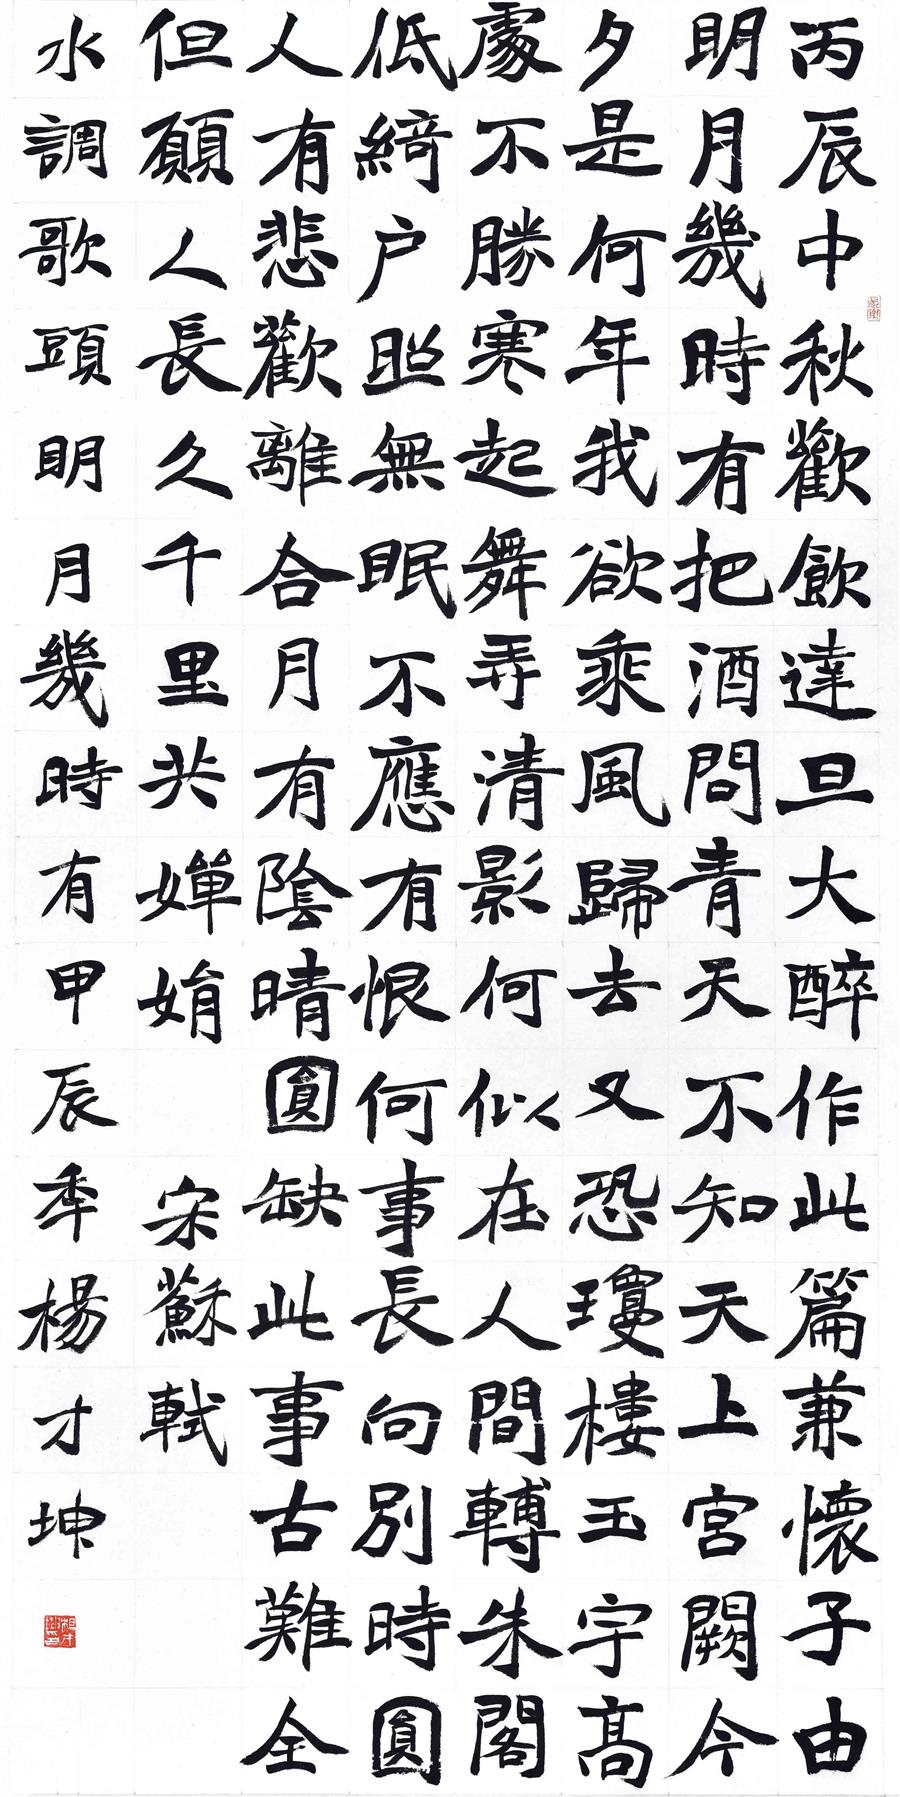 丙辰中秋歡飲達旦大醉作此篇兼懷子由
明月幾時有把酒問青天不知天上宮闕今
夕是何年我欲乘風歸去又恐瓊樓玉宇高
處不勝寒起舞弄清影何似在人間轉朱閣
低綺户照無眠不應有恨何事長向別時圓
人有悲歡離合月有陰晴圓缺此事古難全
但願人長久千里共嬋娟 宋蘇軾
水調歌頭明月幾時有甲辰秊楊才坤